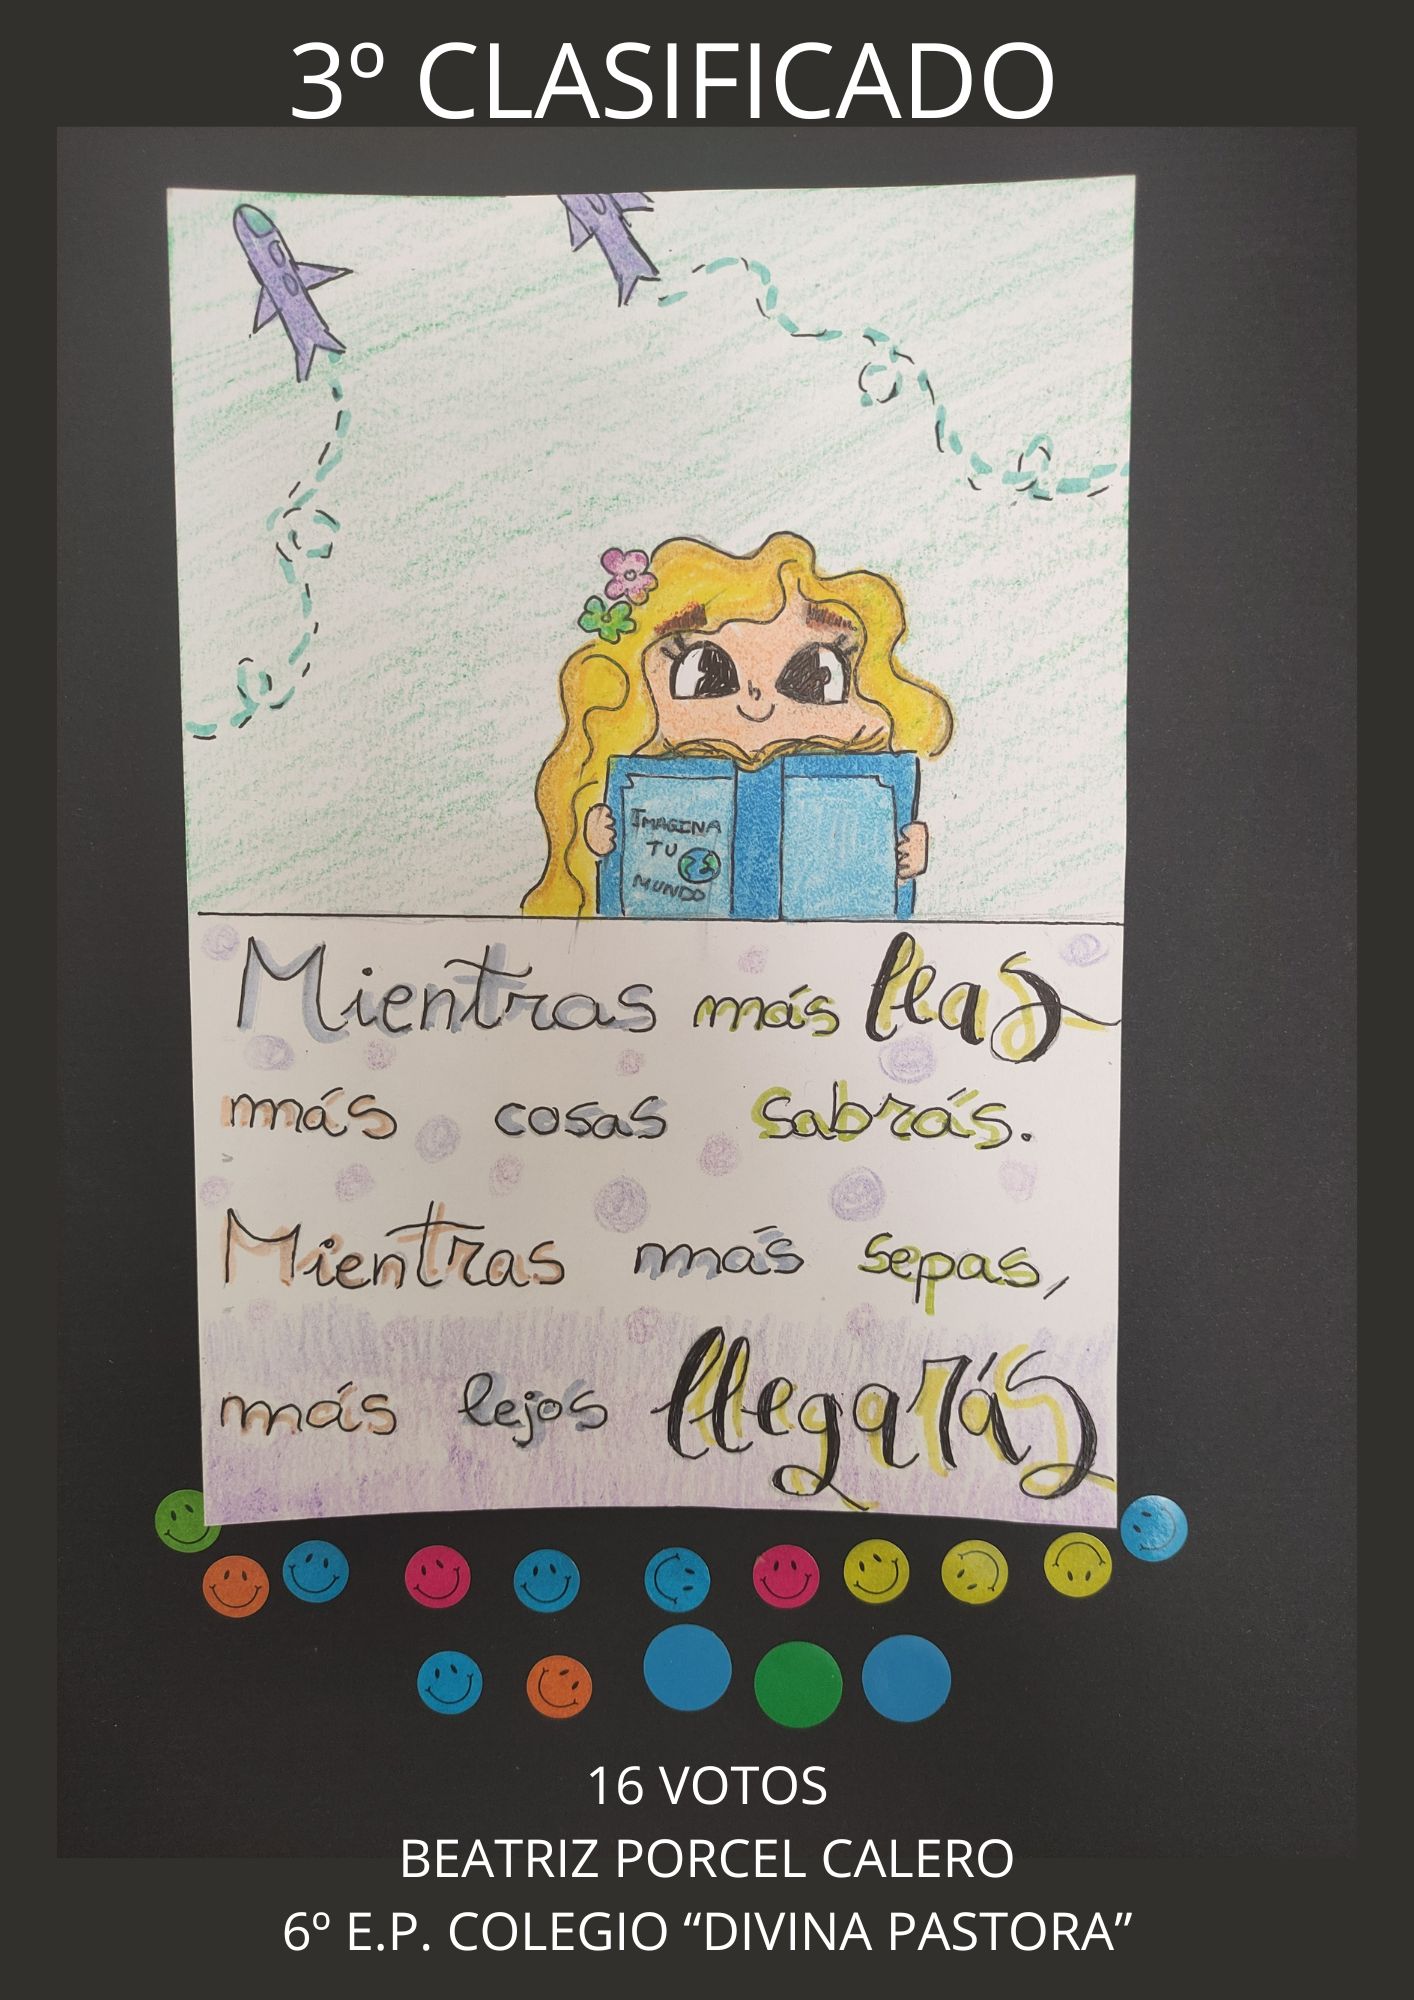 3º CLASIFICADO
IMAGINA
TU
MUNDO
Mientras más leas
más cosas sabrás.
Mientras más sepas,
más lejos llegarás
16 VOTOS
BEATRIZ PORCEL CALERO
6º E.P. COLEGIO “DIVINA PASTORA”